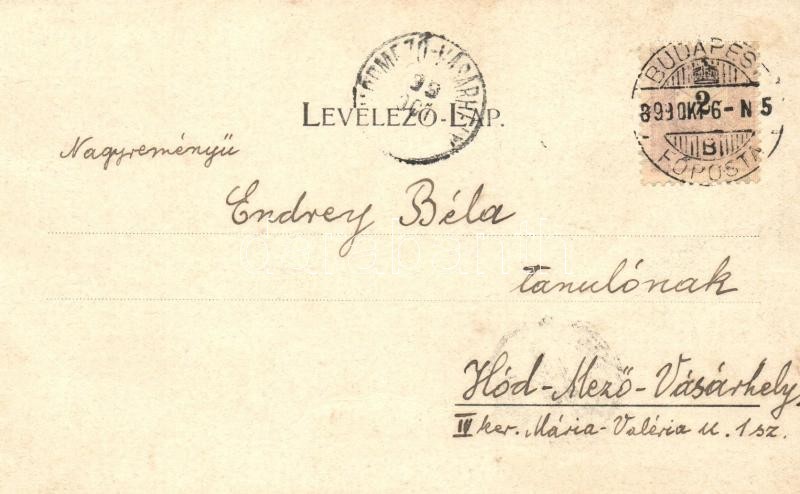 BUDAPEST
2
899 OKT 6 - N 5
B
FŐPOSTA
HÓDMEZŐ-VÁSÁRHELY
99
OKT
LEVELEZŐ-LAP.
Nagyreményű
Endrey Béla
tanulónak
Hód-Mező-Vásárhely,
IV ker. Mária-Valéria u. 1 sz.